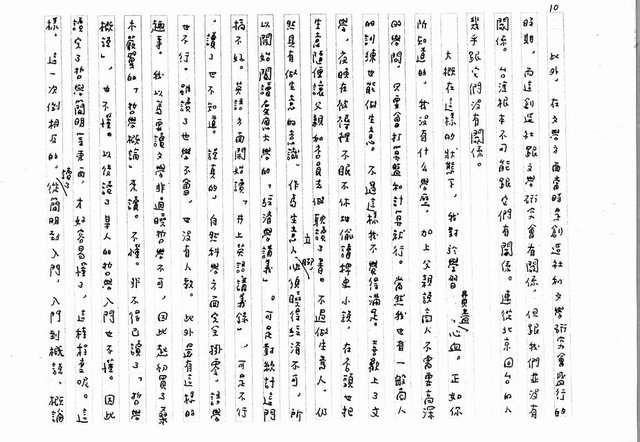 10
此外，在文學方面當時是創造社和文學研究會盛行的
時期。而這創造社跟文學研究會有關係，但跟我們並沒有
關係。台灣根本不可能跟它們有關係。連從北京回台的人
幾乎跟它們沒有關係。
大概在這樣的狀態下，我對於學習費盡心血。正如你
所知道的，我沒有什么學歷，加上父親說商人不需要高深
的學問，只要會打算盤和計算就行。當然我也有一般商人
的訓練也能做生意。不過這樣我不覺得滿足。喜歡上了文
學，夜晚在被褥裡不眠不休地偷讀禪史小說，在店頭也把
生意隨便讓父親和店員去做，聽讀了書。不過做生意人，仍
然具有做生意的意識，作為生意人必須立腳 曉得經濟不可，所
以開始閱讀慶應大學的「經濟學講義」。可是對統計這門
搞不好。英語方面開始讀「井上英語講義錄」，可是不行
，讀了也不知道。說真的，自然科學方面完全掛零，語學
也不行。雖讀了也學不會，也沒有人教。此外還有這樣的
趣事。我以為要讀文學非通曉哲學不可，因此起初買了桑
木嚴翼的「哲學概論」先讀。不懂。非不得已讀了「哲學
概說」，也不懂。以後讀了某人的哲學入門也不懂。因此
讀完了哲學簡明 讀了 等東西，才好容易懂了，這種程度呢。這
樣。這一次倒相反的，從簡明到入門，入門到概說，概論